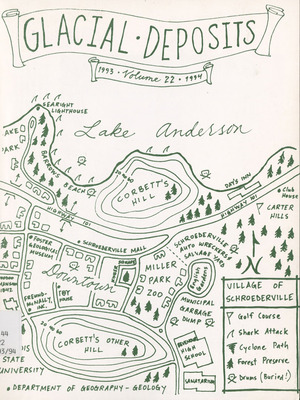 GLACIAL · DEPOSITS
1993 · Volume 22 · 1994
SEARIGHT
LIGHTHOUSE
Lake Anderson
LAKE
PARK
BEACH
DAYS INN
CLUB
HOUSE
CORBETT'S
HILL
HIGHWAY 101
HIGHWAY 101
CARTER
HILLS
FOSTER
GEOLOGICAL
MUSEUM
SCHROEDERVILLE MALL
SCHROEDERVILLE
AUTO WRECKERS
SALVAGE YARD
N
Downtown
MILLER
PARK
ZOO
MUNICIPAL
GARBAGE
DUMP
FREUND-
McNALLY,
INK.
TOY
HOUSE
VILLAGE OF
SCHROEDERVILLE
Golf Course
Shark Attack
Cyclone Path
Forest Preserve
Drums (Buried!)
CORBETT'S OTHER
HILL
HIGH
SCHOOL
SANITARIUM
44
2
93/94
STATE
UNIVERSITY
DEPARTMENT OF GEOGRAPHY - GEOLOGY